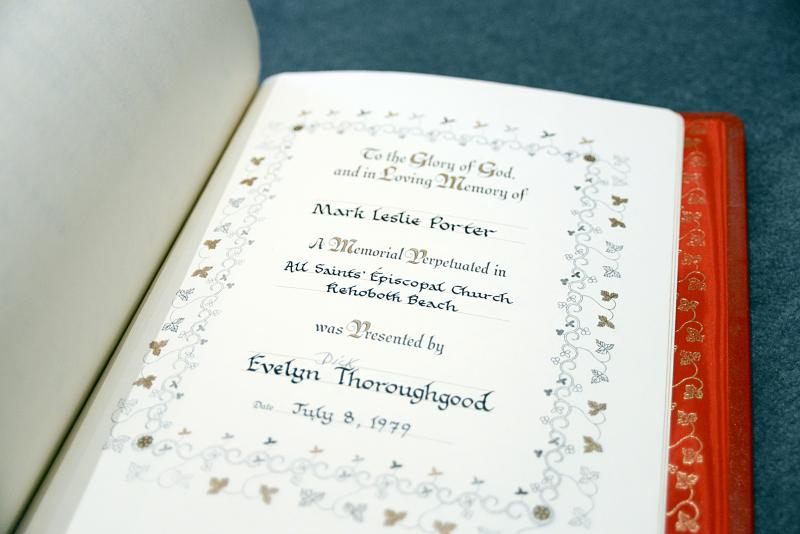 To the Glory of God,
and in Loving Memory of
Mark Leslie Porter
A Memorial Perpetuated in
All Saints' Episcopal Church
Rehoboth Beach
was Presented by
Dick
Evelyn Thoroughgood
Date July 8, 1979